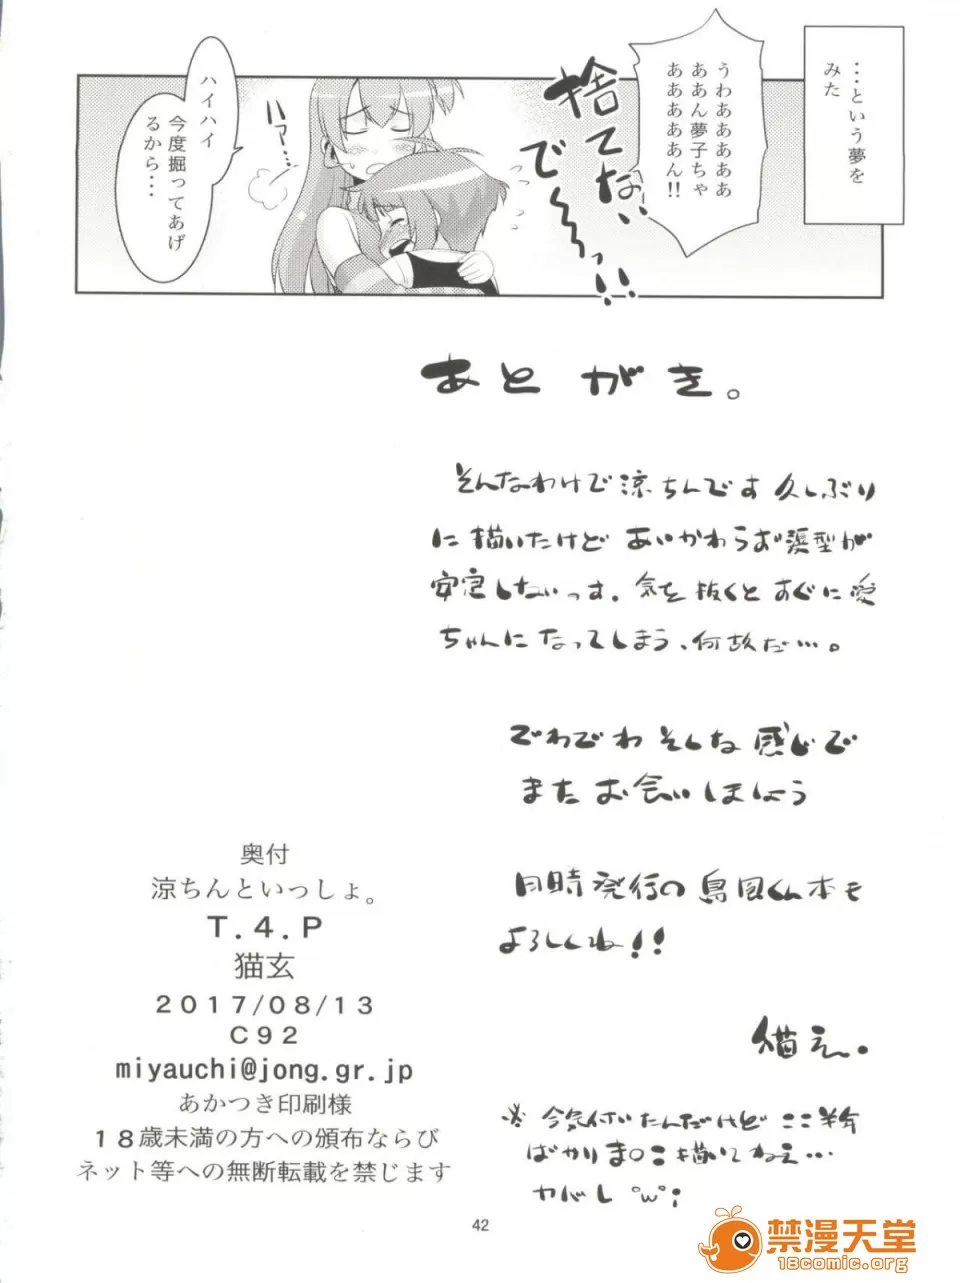 ・・・という夢を
みた
うわああああああ
ああん夢子ちゃ
ああああああん!!
捨てないで〜〜っ!!
ハァ…
ハイハイ
今度掘ってあげ
るから・・・
あとがき。
そんなわけで涼ちんです久しぶり
に描いたけどあいかわらず髪型が
安定しないっす。気を抜くとすぐに愛
ちゃんになってしまう、何故だ…。
でわでわそんな感じで
またお会いしましょう
同時発行の島風くん本も
よろしくね!!
猫玄。
※今気付いたんだけどここ半年
ばかり描いてねえ…
ヤバし °w°;
奥付
涼ちんといっしょ。
T.4.P
猫玄
2017/08/13
C92
miyauchi@jong.gr.jp
あかつき印刷様
18歳未満の方への頒布ならび
ネット等への無断転載を禁じます
42
禁漫天堂
18comic.org